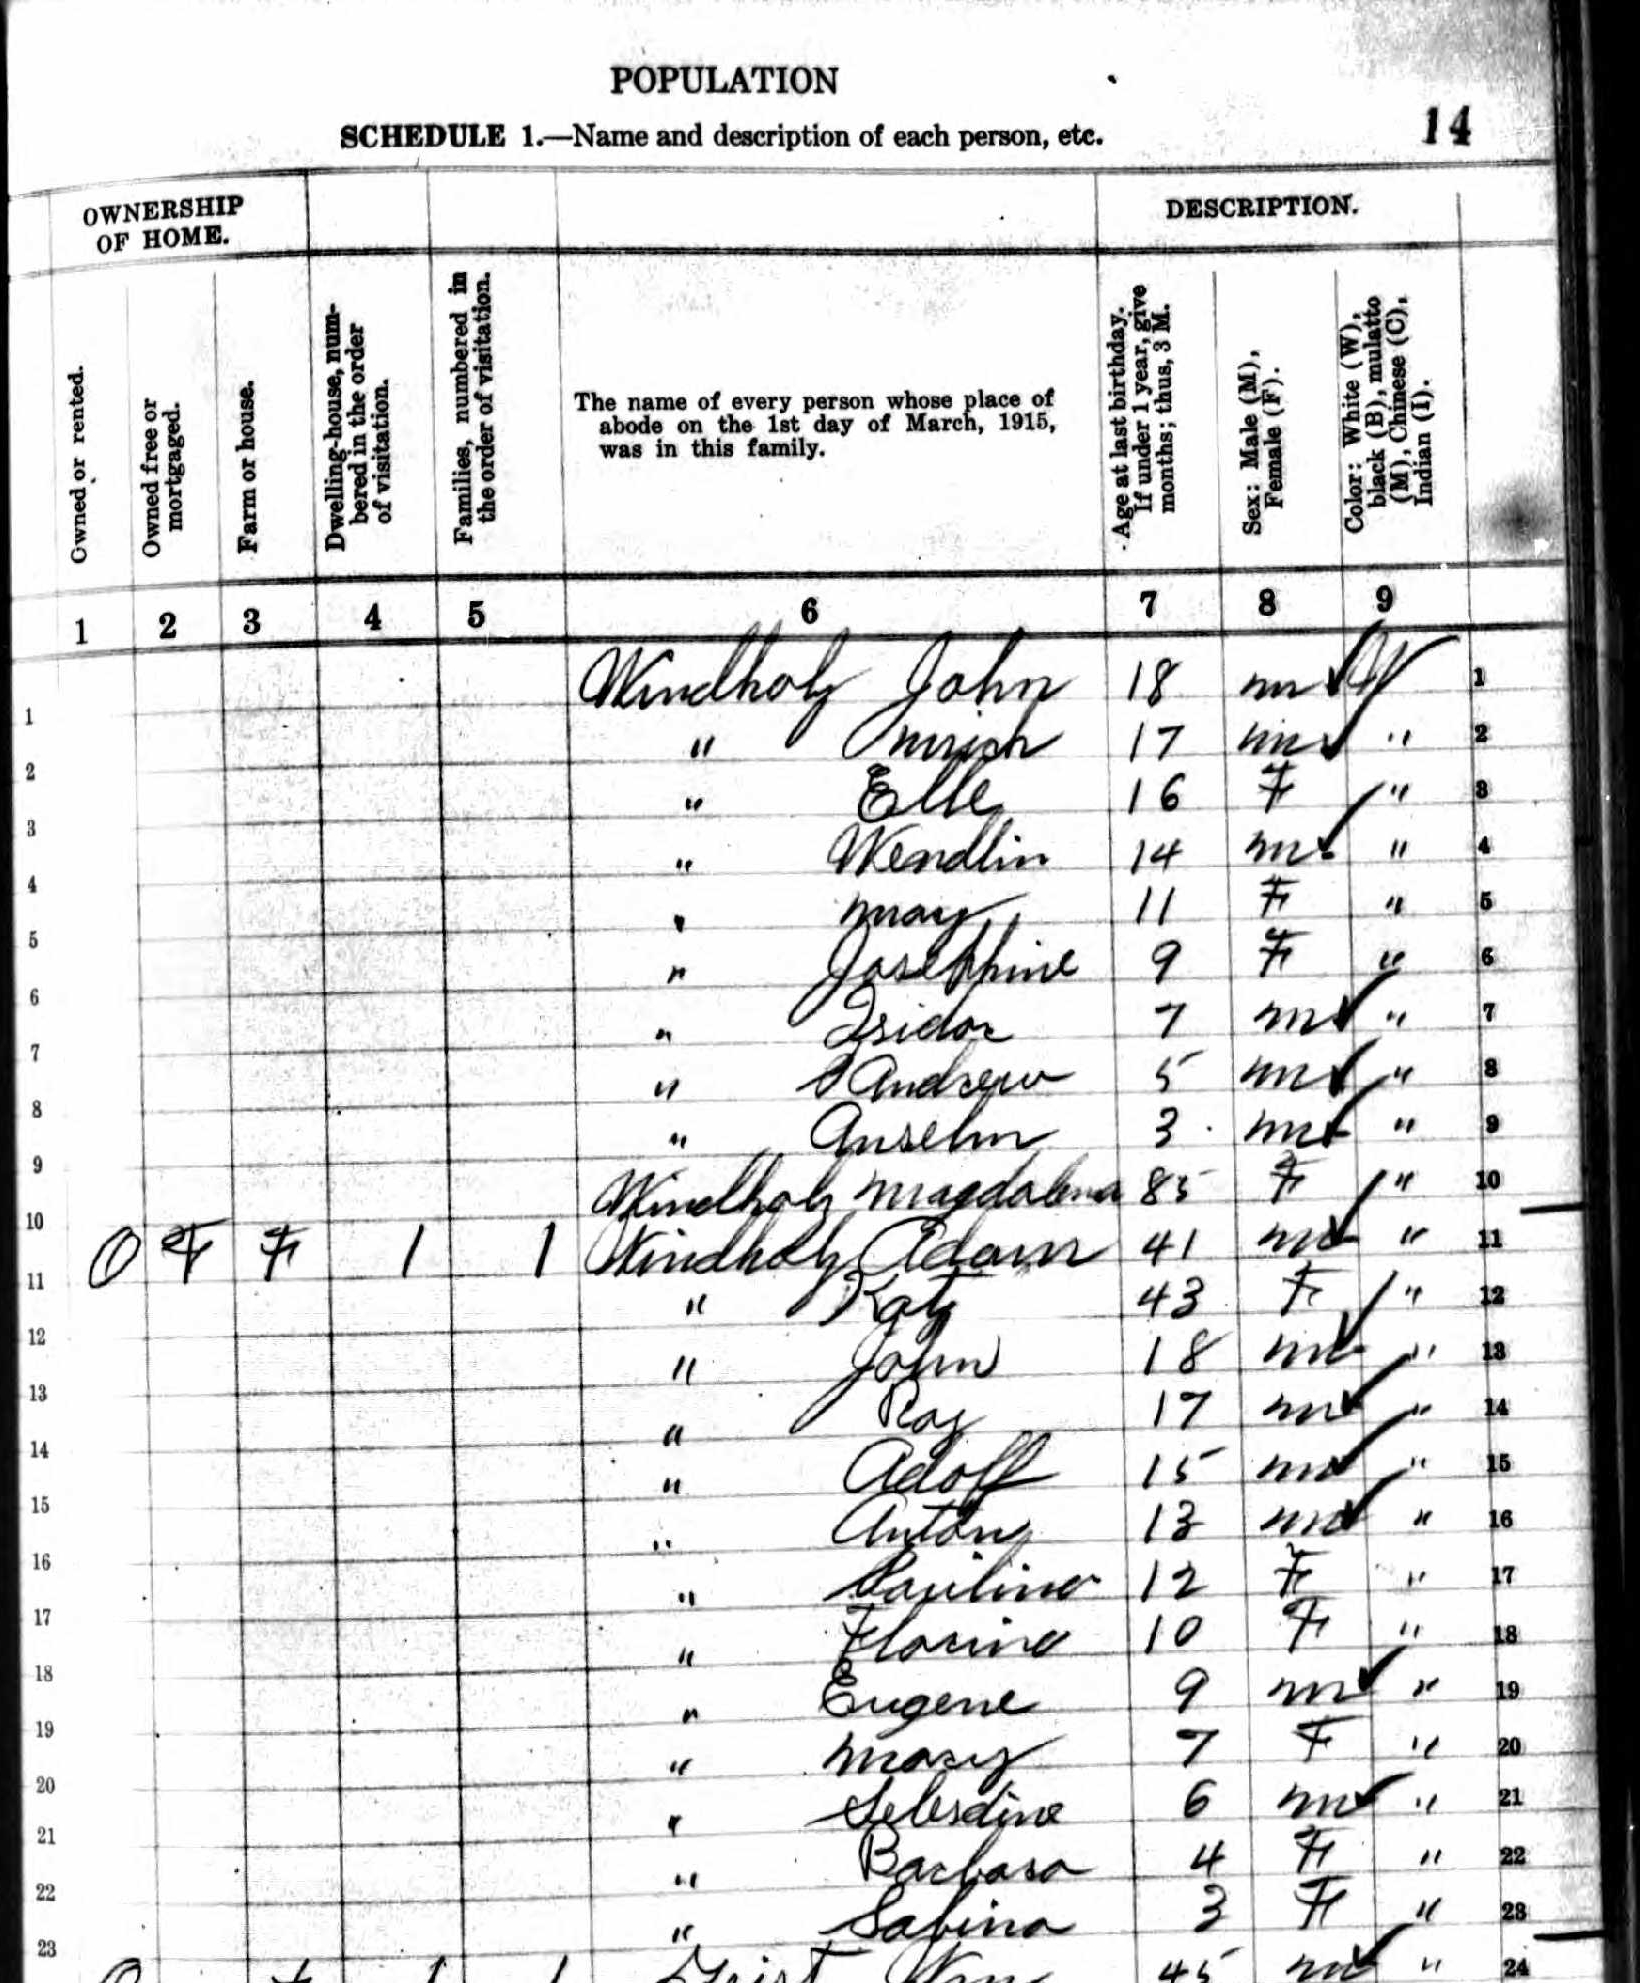 POPULATION
SCHEDULE 1.—Name and description of each person, etc.
14
OWNERSHIP OF HOME.
DESCRIPTION.
Owned or rented.
Owned free or mortgaged.
Farm or house.
Dwelling-house, num-bered in the order of visitation.
Families, numbered in the order of visitation.
The name of every person whose place of
abode on the 1st day of March, 1915,
was in this family.
Age at last birthday. If under 1 year, give months; thus, 3 M.
Sex: Male (M), Female (F).
Color: White (W), black (B), mulatto (M), Chinese (C), Indian (I).
1 2 3 4 5 6 7 8 9
1 Windholz John 18 m W 1
2 " 17 m " 2
3 " Elle 16 F " 3
4 " Wendlin 14 m " 4
5 " Mary 11 F " 5
6 " Josephine 9 F " 6
7 " Isidor 7 m " 7
8 " Andrew 5 m " 8
9 " Anselm 3 m " 9
10 Windholz Magdalena 85 F " 10
11 O F F 1 1 Windholz Adam 41 m " 11
12 " Katy 43 F " 12
13 " John 18 m " 13
14 " Ray 17 m " 14
15 " Adolf 15 m " 15
16 " Anton 13 m " 16
17 " Paulina 12 F " 17
18 " Florina 10 F " 18
19 " Eugene 9 m " 19
20 " Mary 7 F " 20
21 " 6 m " 21
22 " Barbara 4 F " 22
23 " Sabina 3 F " 23
O 1 1 45 m " 24